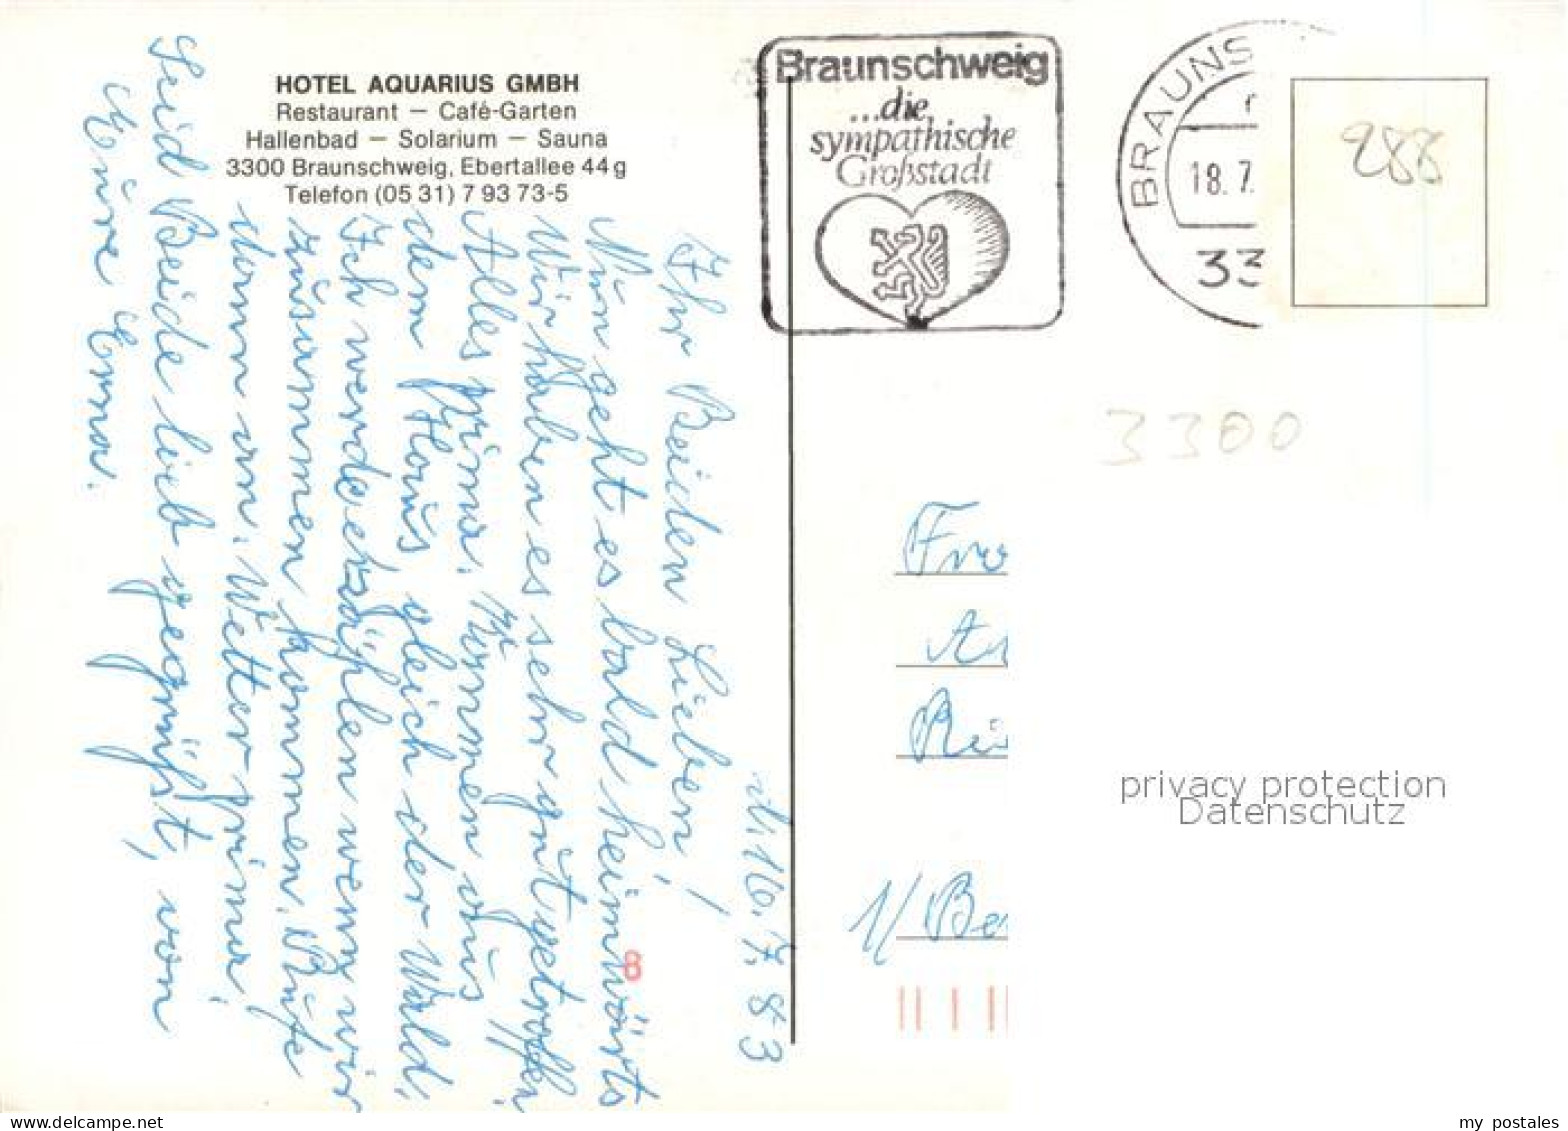 HOTEL AQUARIUS GMBH
Restaurant — Café-Garten
Hallenbad — Solarium — Sauna
3300 Braunschweig, Ebertallee 44 g
Telefon (05 31) 7 93 73-5
d. 16. 7. 83
Ihr Beiden Lieben!
Nun geht es bald heimwärts
Wir haben es sehr gut getroffen
Alles prima. Kommen aus
dem Haus, gleich der Wald.
Ich werde erzählen wenn wir
zusammen kommen. Rufe
dann an. Wetter prima!
Seid Beide lieb gegrüßt, von
Eure Erna.
Braunschweig
...die
sympathische
Großstadt
BRAUNS
18. 7.
33
288
3300
1/ Be
8
privacy protection
Datenschutz
my postales